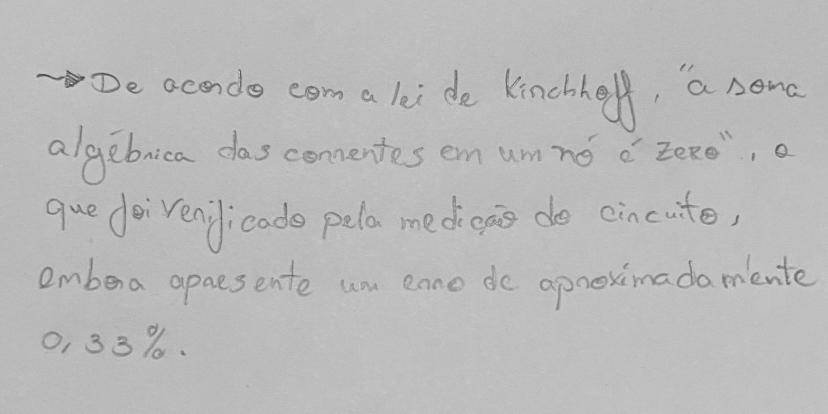 → De acordo com a lei de Kirchhoff, "a soma
algébrica das correntes em um nó é zero", o
que foi verificado pela medição do circuito,
embora apresente um erro de aproximadamente
0,33%.